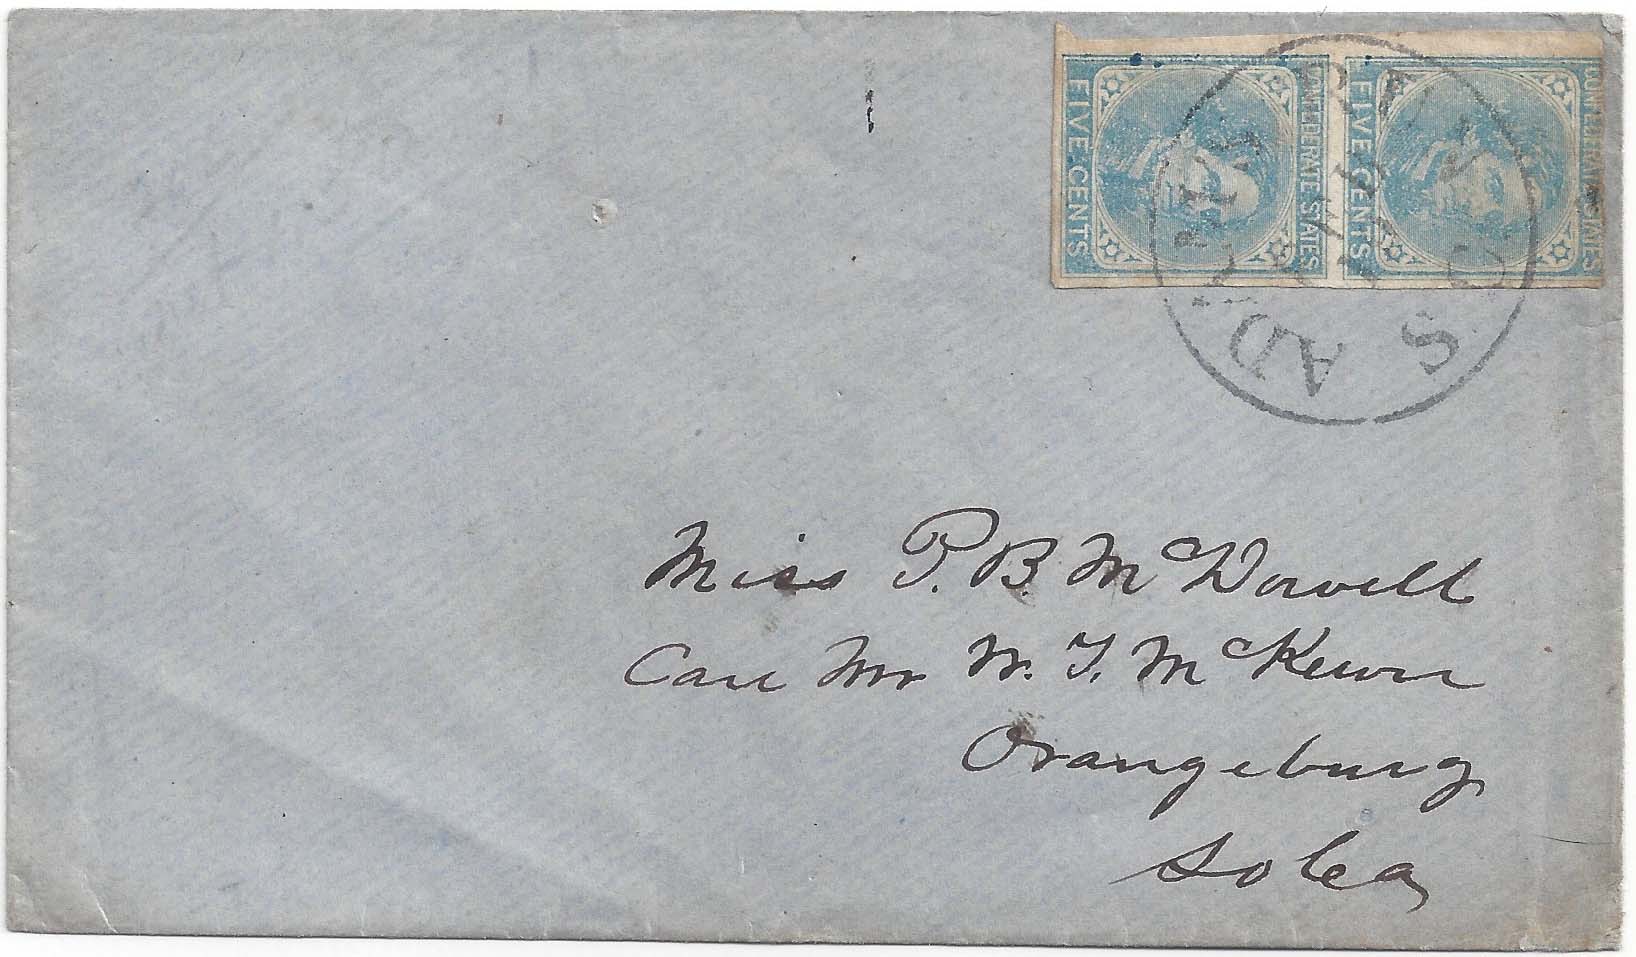 FIVE CENTS
CONFEDERATE STATES
FIVE CENTS
CONFEDERATE STATES
Miss P. B. McDowell
Care Mr W. T. McKewn
Orangeburg
So Ca